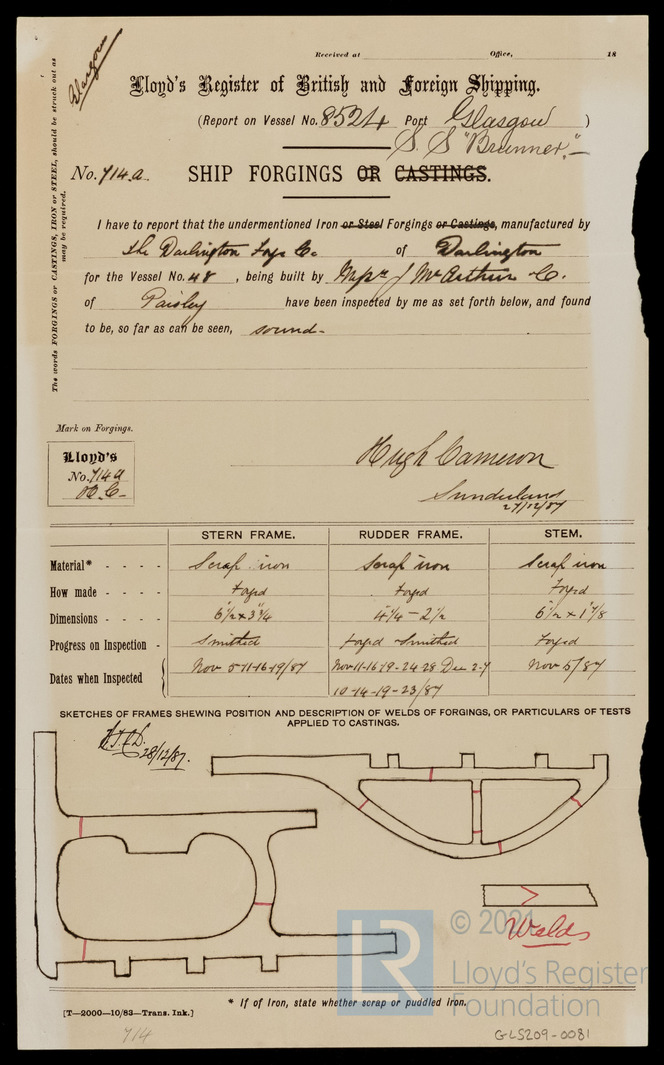 Glasgow
Received at Office, 18
Lloyd's Register of British and Foreign Shipping.
(Report on Vessel No. 8524 Port Glasgow)
S. S "Brunner,"
No. 714.a.
SHIP FORGINGS OR CASTINGS.
The words FORGINGS or CASTINGS, IRON or STEEL, should be struck out as
may be required.
I have to report that the undermentioned Iron or Steel Forgings or Castings, manufactured by
The Darlington Forge Co. of Darlington
for the Vessel No. 48, being built by J McArthur Co.
of Paisley have been inspected by me as set forth below, and found
to be, so far as can be seen, sound-
Mark on Forgings.
Lloyd's
No. 714a
H. C-
Hugh Cameron
Sunderland
27/12/87
STERN FRAME. RUDDER FRAME. STEM.
Material* - - - - Scrap iron Scrap iron Scrap iron
How made - - - - Forged Forged Forged
Dimensions - - - - 6½ x 3¾ 4¼ - 2½ 6½ x 1⅞
Progress on Inspection - Smithed Forged Smithed Forged
Dates when Inspected Nov 5-11-16-19/87 Nov 11-16-19-24-28 Dec 2-7 Nov 5/87
10-14-19-23/87
SKETCHES OF FRAMES SHEWING POSITION AND DESCRIPTION OF WELDS OF FORGINGS, OR PARTICULARS OF TESTS
APPLIED TO CASTINGS.
28/12/87.
Welds
© 2021
LR
Lloyd's Register
Foundation
* If of Iron, state whether scrap or puddled iron.
[T—2000—10/83—Trans. Ink.]
714
GLS209-0081